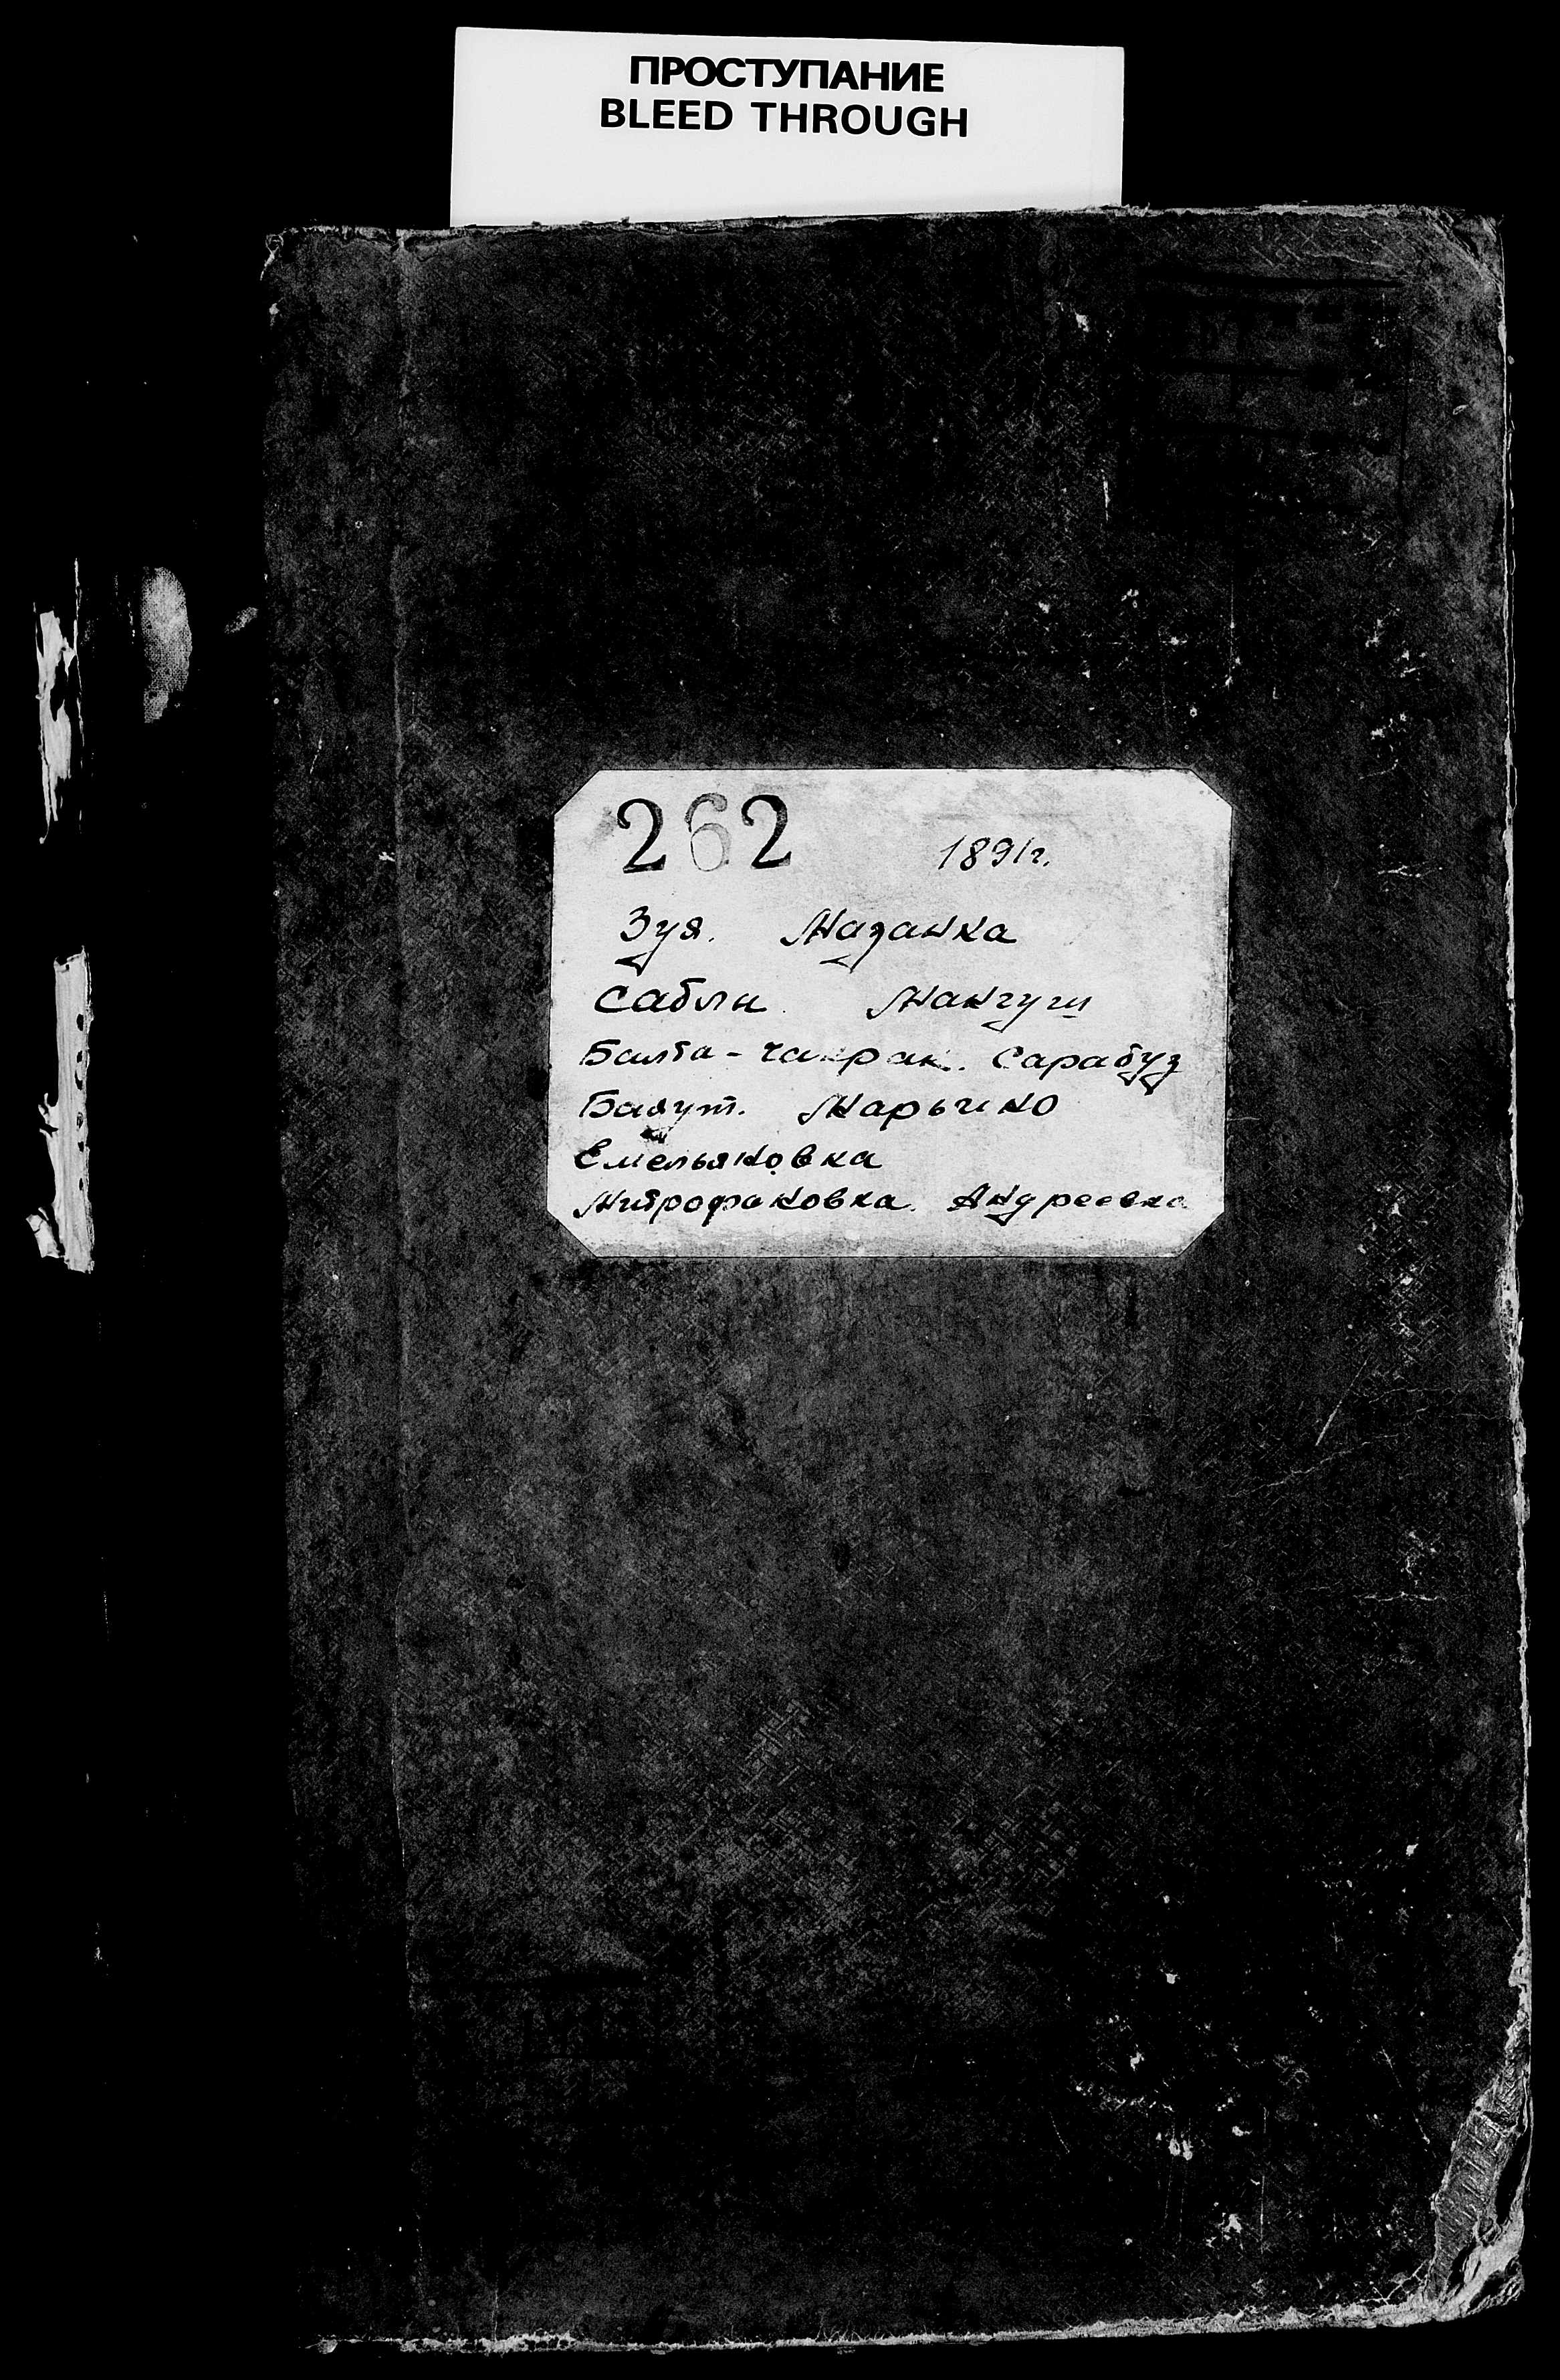 ПРОСТУПАНИЕ
BLEED THROUGH
262 1891г.
Зуя. Мазанка
Саблы. Мангуш
Балта-Чакрак. Сарабуз
Баяут. Марьино
Емельяновка
Митрофановка. Андреевка